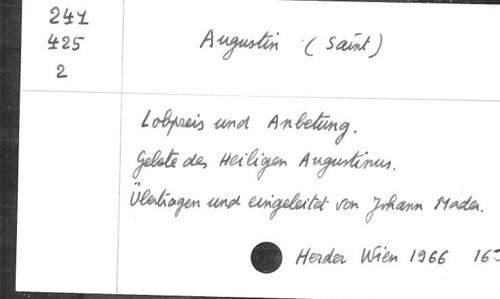 241
425
2
Augustin (Saint)
Lobpreis und Anbetung.
Gebete des Heiligen Augustinus.
Übertragen und eingeleitet von Johann Mader.
Herder Wien 1966 163